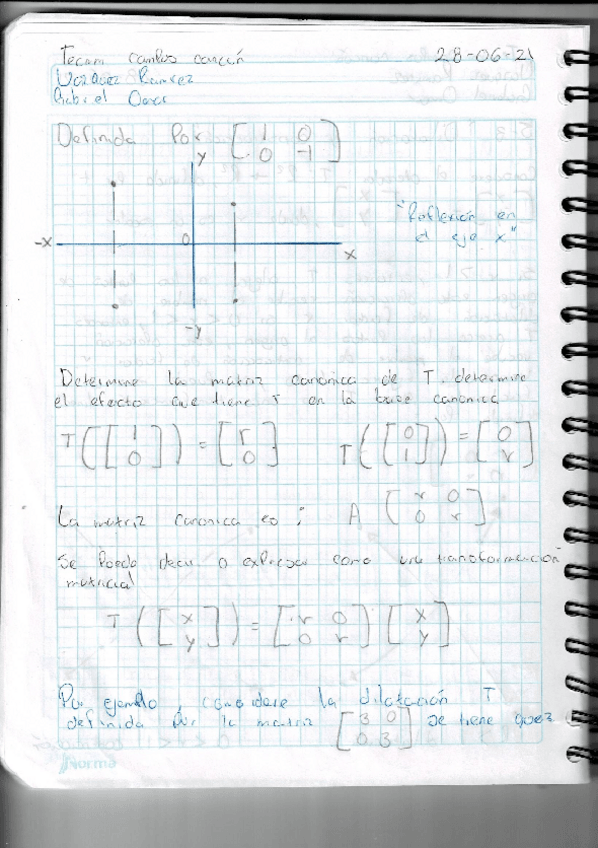 Tecnm campus cancún 28-06-21
Vazquez Ramirez
Gabriel Omar
Definida Por [ 1 0
0 -1 ]
y
-x 0 x
-y
"Reflexión en
el eje x"
Determine la matriz canonica de T. determine
el efecto que tiene r en la base canonica
T([ 1
0 ]) = [ r
0 ] T([ 0
1 ]) = [ 0
r ]
La matriz canonica es ; A [ r 0
0 r ]
Se Puede decir o expresar como una transformación
matricial
T([ x
y ]) = [ r 0
0 r ] [ x
y ]
Por ejemplo, considere la dilatación T
definida por la matriz [ 3 0
0 3 ] se tiene que:
Norma